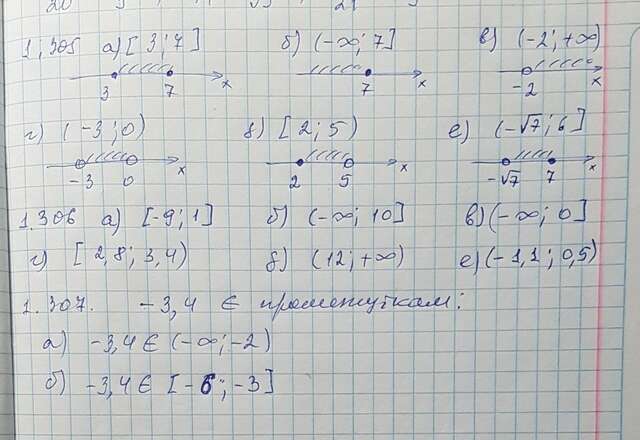 1.305 а) [3;7] б) (-∞; 7] в) (-2; +∞)
3 7 x 7 x -2 x
г) (-3; 0) д) [2; 5) е) (-√7; 6]
-3 0 x 2 5 x -√7 7 x
1.306 а) [-9; 1] б) (-∞; 10] в) (-∞; 0]
г) [2,8; 3,4) д) (12; +∞) е) (-1,1; 0,5)
1.307. -3,4 ∈ промежуткам:
а) -3,4 ∈ (-∞; -2)
б) -3,4 ∈ [-6; -3]